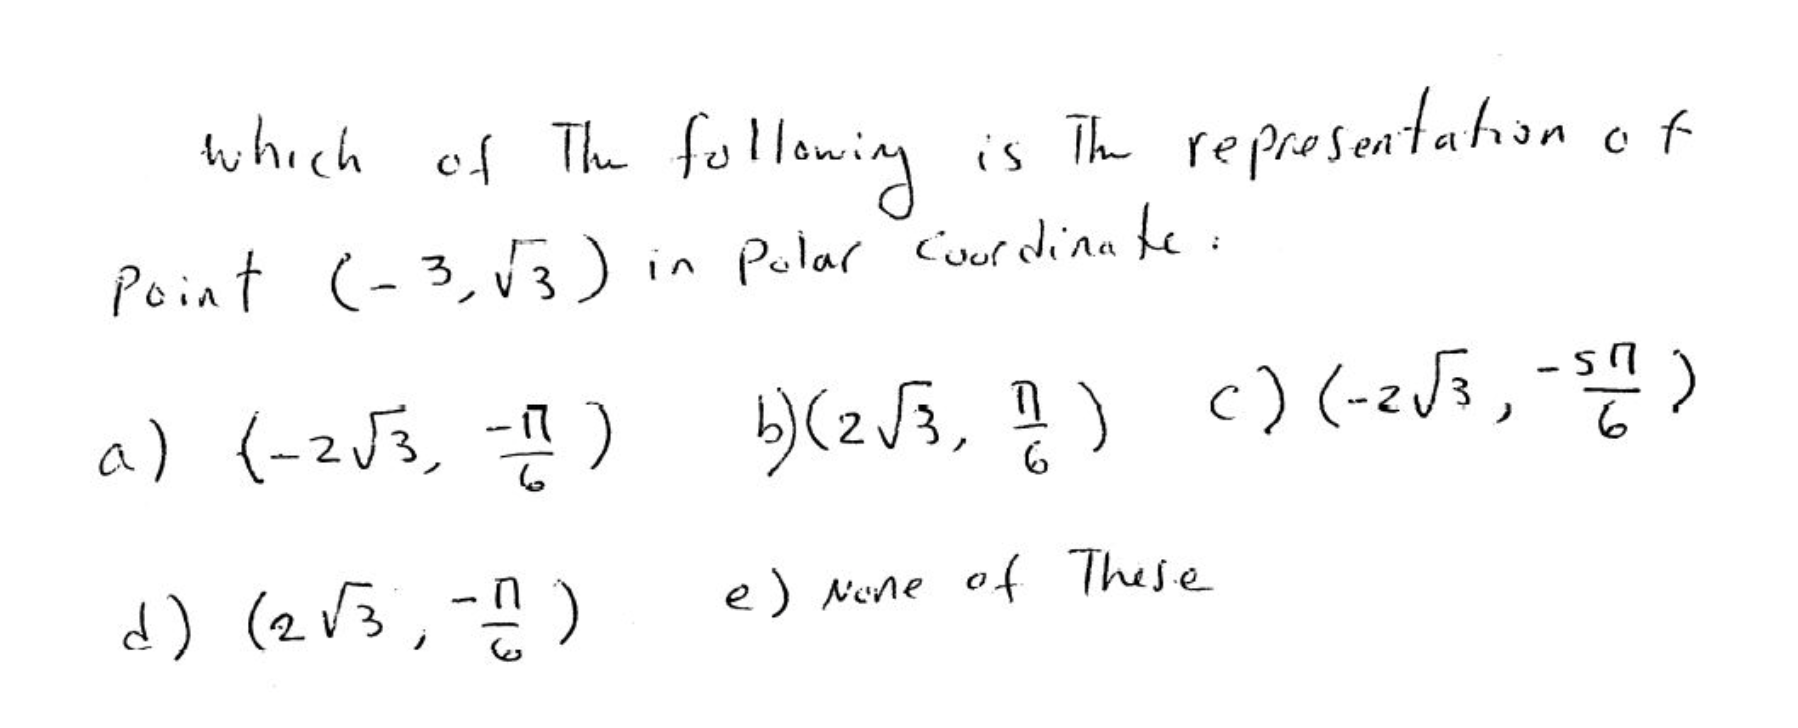 which of The following is The representation of
Point (-3, √3) in Polar Coordinate:
a) (-2√3, -π/6) b) (2√3, π/6) c) (-2√3, -5π/6)
d) (2√3, -π/6) e) None of These